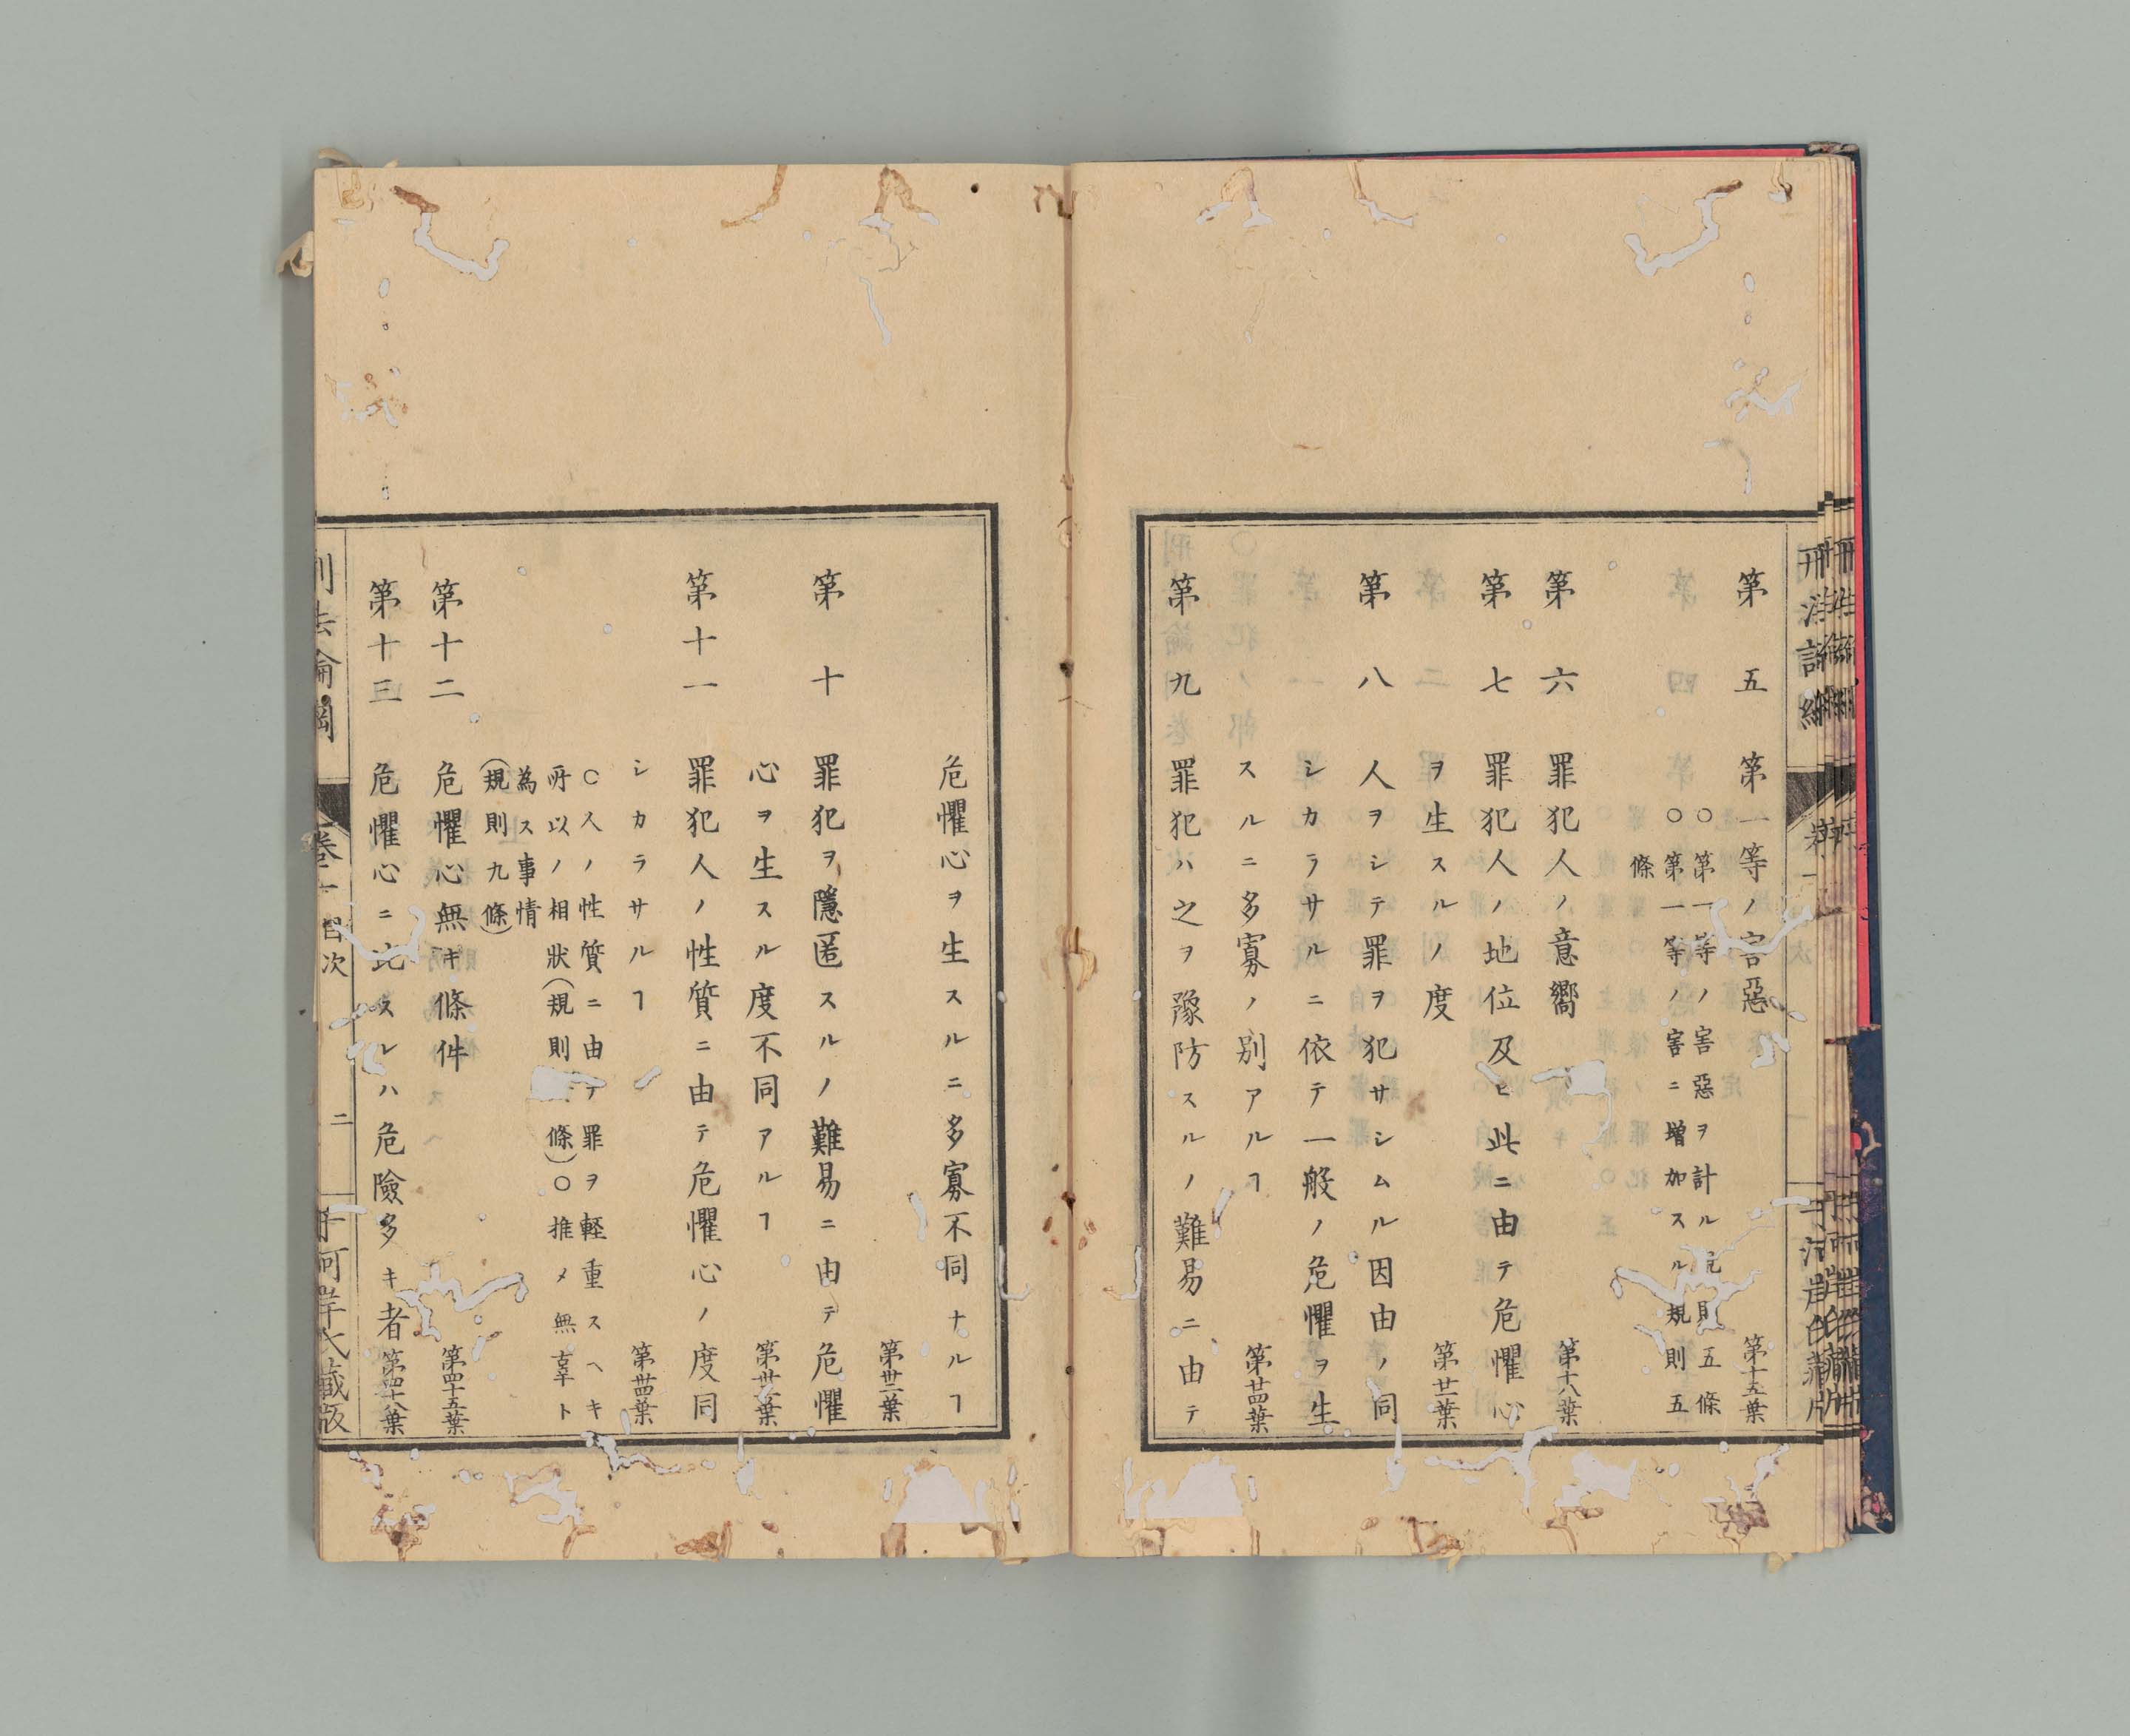 第五 第一等ノ害惡 第十五葉
○第一等ノ害惡ヲ計ル 則五條
○第一等ノ害ニ増加スル規則五
條
第六 罪犯人ノ意嚮 第十八葉
第七 罪犯人ノ地位及ヒ此ニ由テ危懼心
ヲ生スルノ度 第廿二葉
第八 人ヲシテ罪ヲ犯サシムル因由ノ同
シカラサルニ依テ一般ノ危懼ヲ生
スルニ多寡ノ別アルヿ 第廿四葉
第九 罪犯ハ之ヲ豫防スルノ難易ニ由テ
危懼心ヲ生スルニ多寡不同ナルヿ
第卅二葉
第十 罪犯ヲ隱匿スルノ難易ニ由テ危懼
心ヲ生スル度不同アルヿ 第 葉
第十一 罪犯人ノ性質ニ由テ危懼心ノ度同
シカラサルヿ 第卅四葉
○人ノ性質ニ由テ罪ヲ軽重スヘキ
所以ノ相狀(規則 條)○推メ無辜ト
為ス事情
(規則九條)
第十二 危懼心無キ條件 第四十五葉
第十三 危懼心ニ比スルハ危險多キ者 第四十八葉
刑法論綱 卷一 目次 二 河岸氏藏版